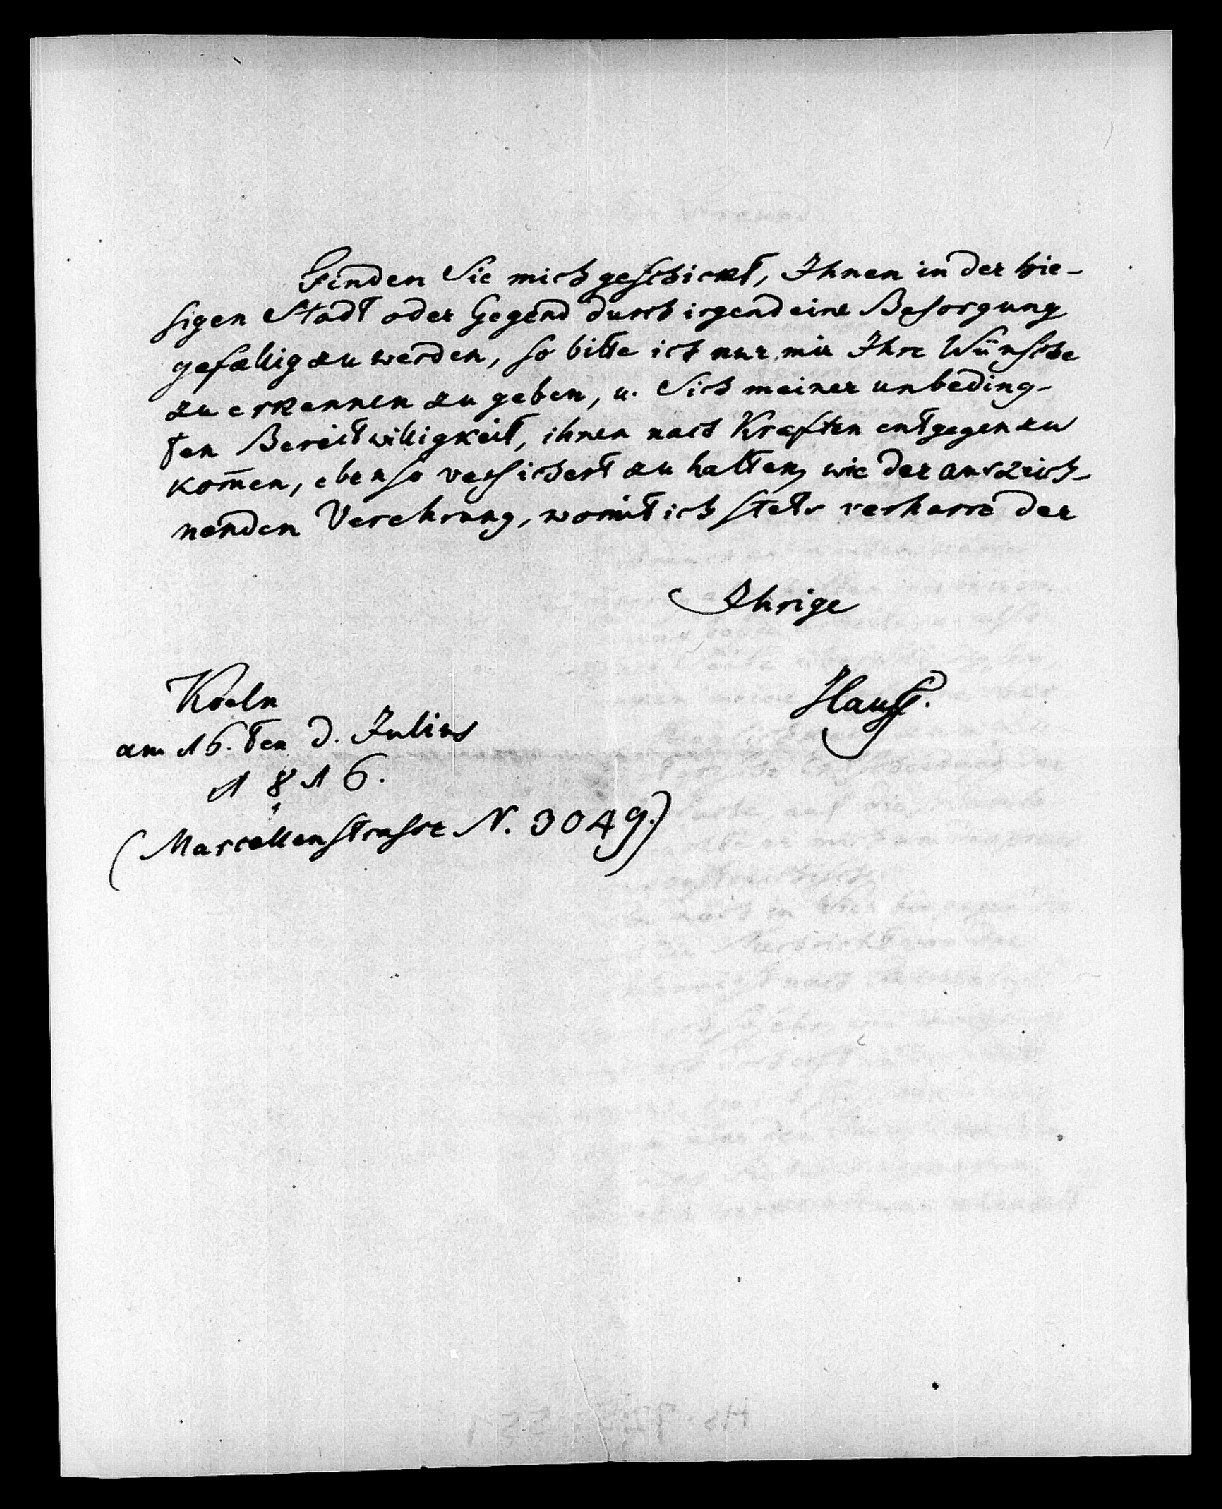 Finden Sie mich geschickt, Ihnen in der hie-
sigen Stadt oder Gegend durch irgend eine Besorgung
gefællig zu werden, so bitte ich nur mir Ihre Wünsche
zu erkennen zu geben, u. Sich meiner unbeding-
ten Bereitwilligkeit, ihnen nach Kræften entgegen zu
kom̄en, ebenso versichert zu halten, wie der auszeich-
nenden Verehrung, womit ich stets verharre der
Ihrige
Haug.
Kœln
am 16. ten d. Julius
1816.
(Marcellenstrasse N. 3049.)